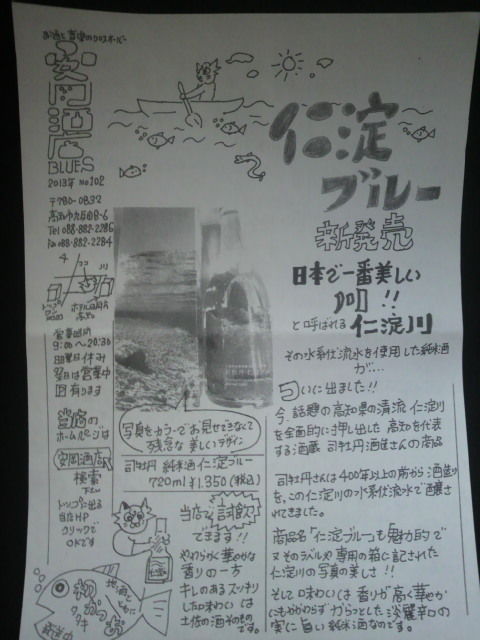 お酒と音楽のクロスオーバー
安岡酒店
BLUES
2013年 No102
〒780-0832
高知市九反田8-6
Tel 088-882-2286
Fax 088-882-2284
営業時間
9:00〜20:30
日曜日休み
翌日は営業中
当店の
ホームページは
安岡酒店
検索
下さい
トップに出る
当店HP
クリックで
OKです
仁淀
ブルー
新発売
日本で一番美しい
川!!
と呼ばれる 仁淀川
その水系伏流水を使用した純米酒
が…
ついに出ました!!
今、話題の高知県の清流 仁淀川
を全面的に押し出した 高知を代表
する酒蔵 司牡丹酒造さんの商品
司牡丹さんは400年以上の前から 酒造り
を、この仁淀川の水系伏流水で醸さ
れてきました。
商品名「仁淀ブルー」も魅力的で
又そのラベルや専用の箱に記された
仁淀川の写真の美しさ!!
そして味わいは香りが高く華やか
にもかかわらず カラッとした淡麗辛口の
実に旨い純米酒なのです。
写真をカラーでお見せできなくて
残念な美しいデザイン
司牡丹 純米酒 仁淀ブルー
720ml ¥1,350(税込)
当店で試飲
できます!!
やわらかく華やかな
香りの一方
キレのあるスッキリ
した味わいは
土佐の酒そのもの
です。
地酒とともに
初かつお
タタキ
発送中